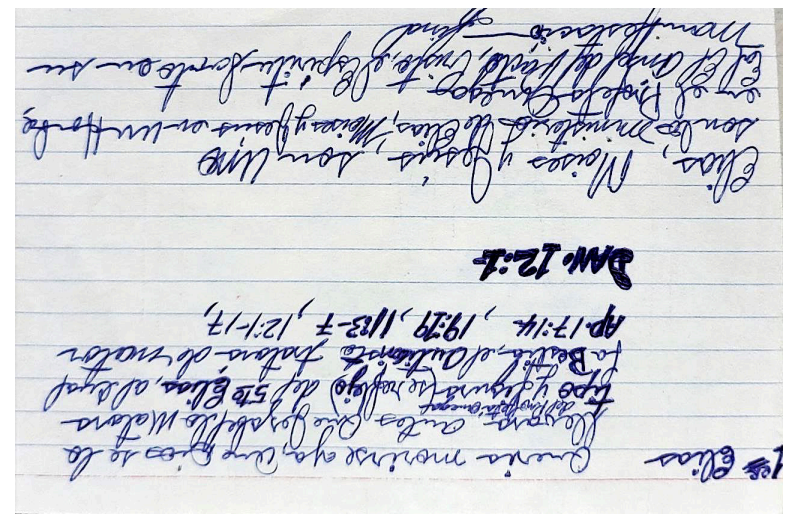 1er Elias queria morirse ya, que Dios se lo
llevara antes que Jezabel lo matara
del Profeta Omega
tipo y figura (se reflejo) del 5to Elias, al igual
la Bestia, el anticristo tratara de matar
Ap. 17:14, 19:19, 11:3-7, 12:1-17,
DAN. 12:1
Elias, Moises y Jesús, son UNO
son los ministerio de Elias, Moises y Jesus en un Hombre,
en el Profeta Omega
Es El Angel del Pacto, Cristo, el Espiritu Santo en su
Manifestacio final